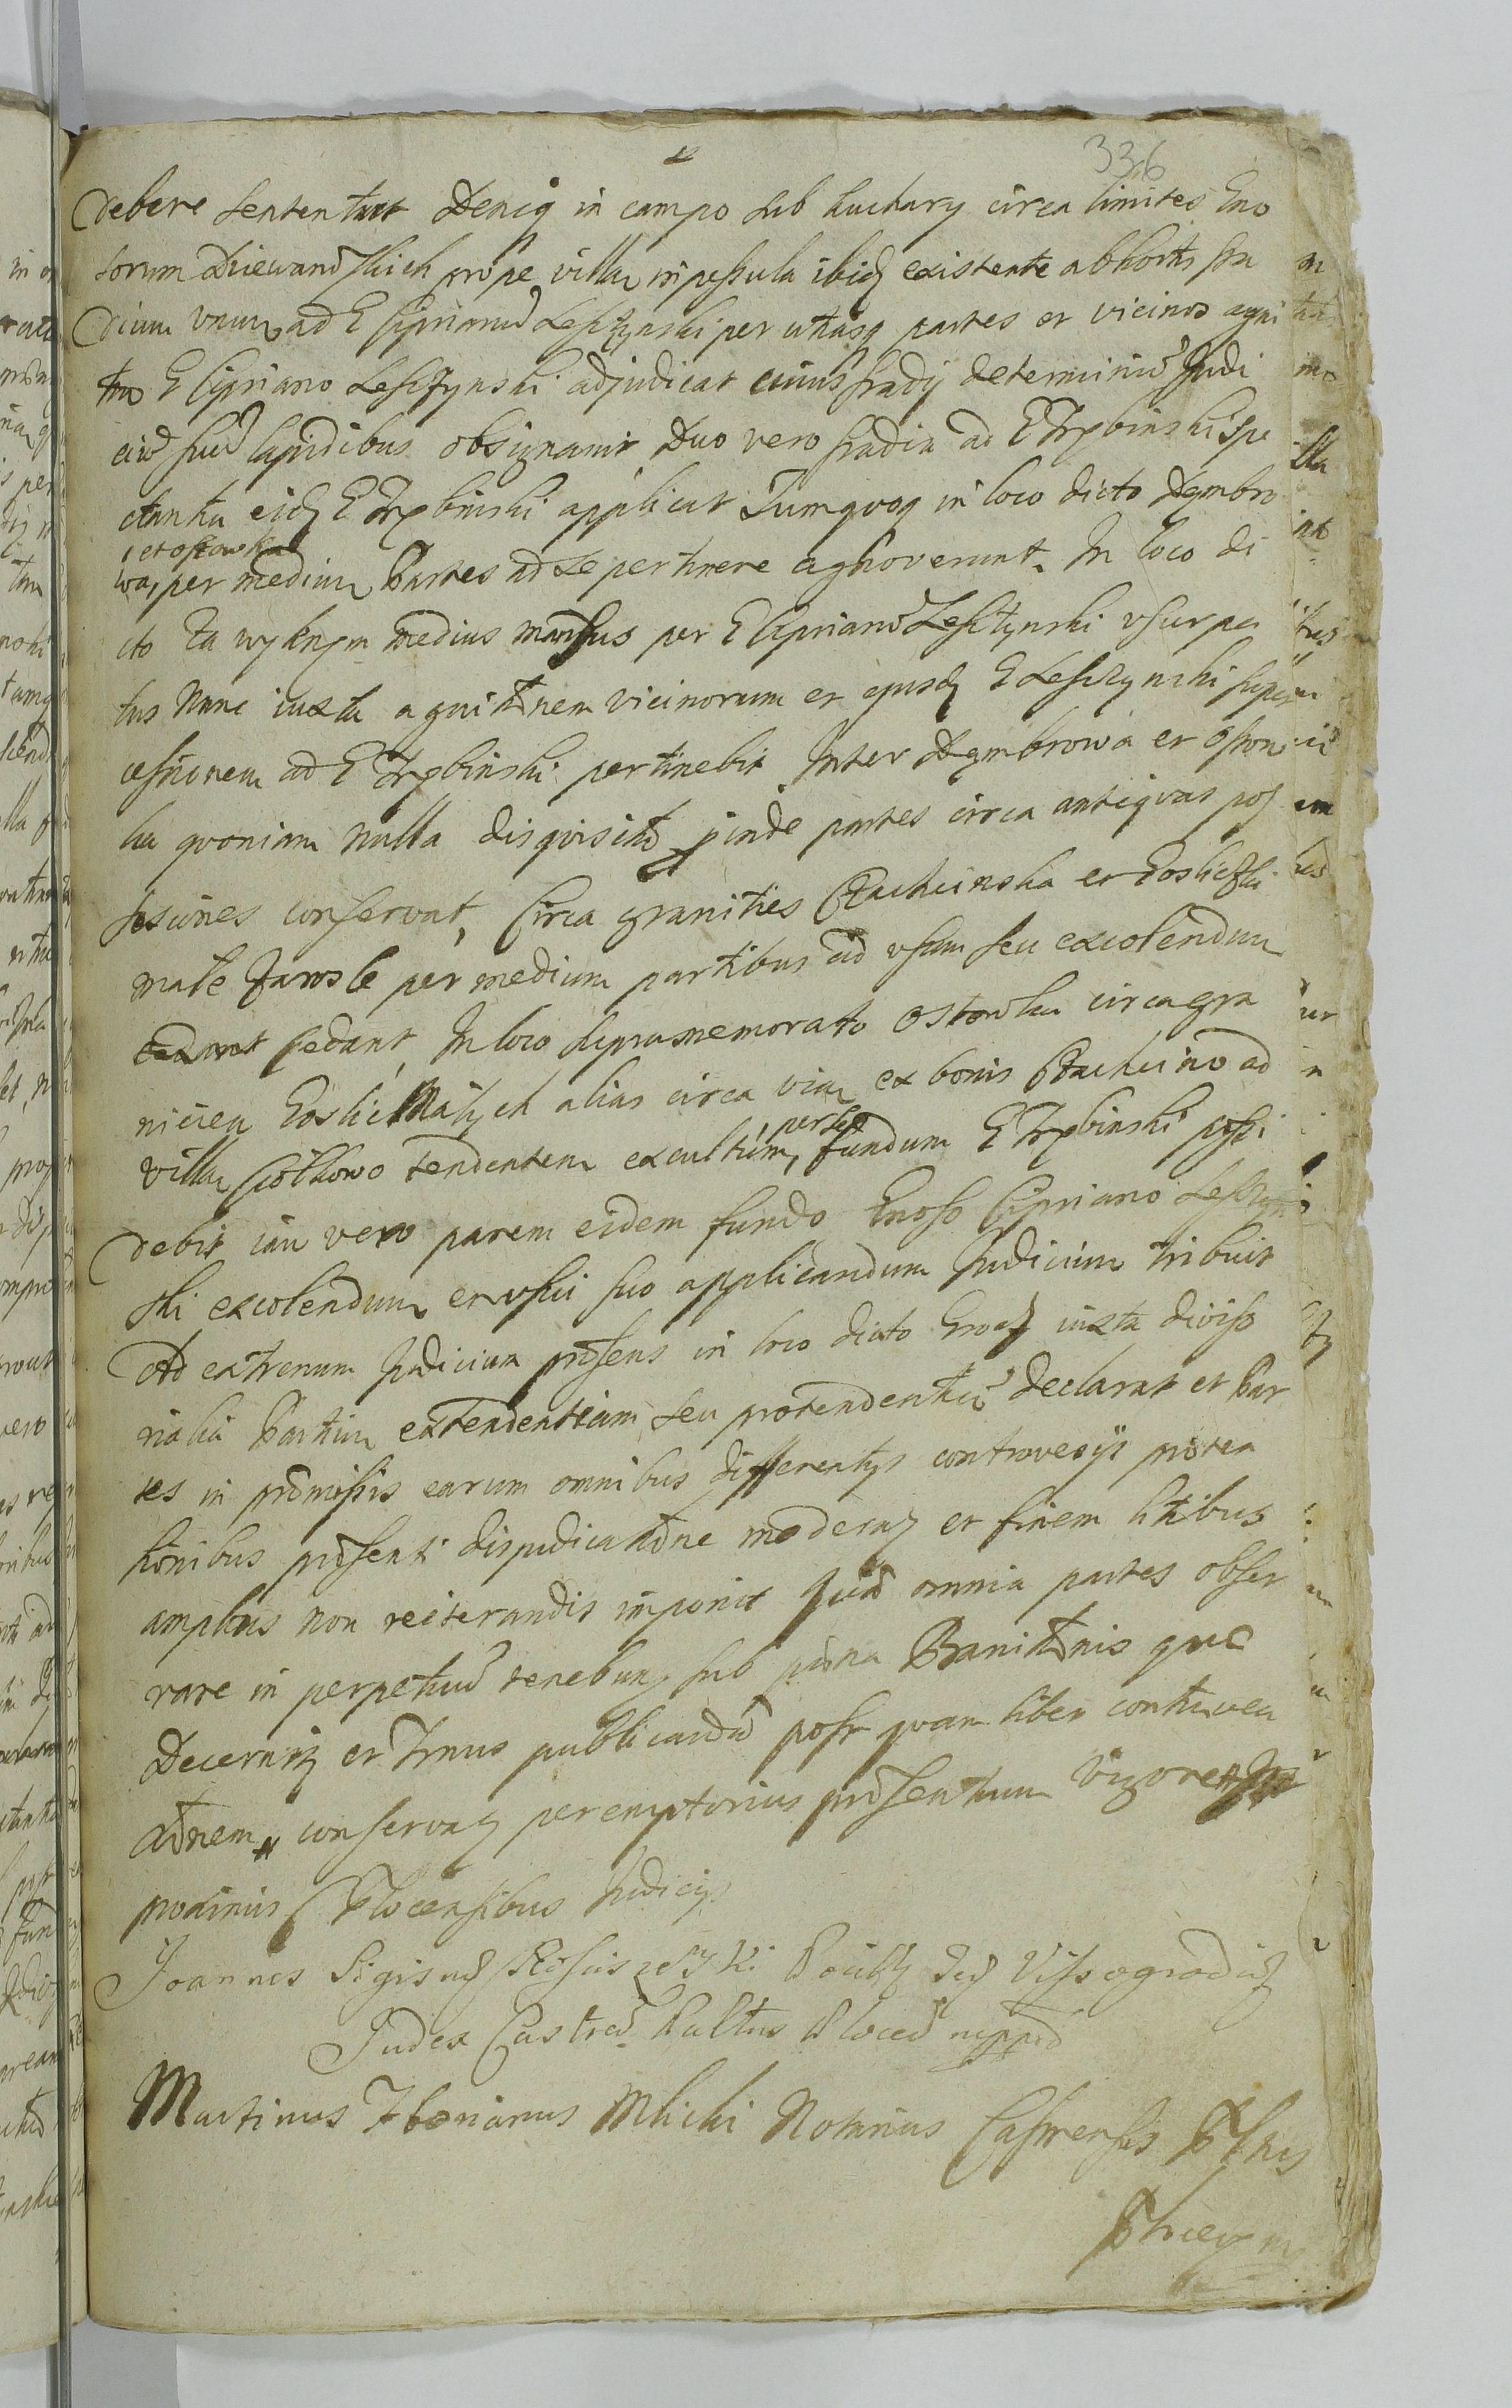 336
debere sententiat Deniq in campo sub kuchary circa limites Gno
sorum Dziewanowskich prope villa in pessula ibid existente ab hortis sta
dium unum ad G Ciprianum Lesczynski per utrasq partes et vicinos agni
tus G Cipriano Lesczynski adjudicat cuius stadij determinium Judi
cium suum lapidibus obsignavit Duo vero stadia ad G Trzbinski spe
ctantia eid G Trzbinski applicat Tumquoq in loco dicto Dymbro
et ostowka
wa, per medium Partes ad se pertinere agnoverunt. In loco di
cto Za wyknym medius mansus per G Ciprianum Lesczynski usurpa
tus Nunc iuxta agnitionem vicinorum et ejusd G Lesczynski super
cessionem ad G Trzbinski pertinebit Inter Dymbrowa et Ostow
ka quoniam nulla disquisitio, proinde partes circa antiquas pos
sesiones conservat, Circa granities Stachcinska et Goslicski
male Jarosle per medium partibus ad usum seu excolendum
cedant, In loco supramemorato Ostowka circa gra
niciea Goslic Małych alias circa via ex bonis Stachcino ad
perse
villa Ciołkowo tendentem excultum, fundum G Trzbinski possi
debit iam vero parem eidem fundo Gnoso Cipriano Lesczyn
ski excolendum et usui suo applicandum Judicium tribuit
Ad extremum Judicium praesens in loco dicto iuxta diviso
nalia Partium extendentium seu protendentium declarat et Par
tes in praemissis earum omnibus differentys controversijs praeten
tionibus praesenti dijudicatione moderat et finem litibus
amplius non reiterandis imponit Quae omnia partes obser
vare in perpetuum tenebunt sub paena Banitionis quae
Decernit et Tmus publicandae post quam liber contraven
tionem conservat peremptorius praesentium vigore
proximis Plocensibus Judicys
Joannes Sigism Vissogradien
Judex Castren Palatus Plocen mppa
Martinus Florianus Mlicki Notarius Castrensis Pltus
Plocen mp